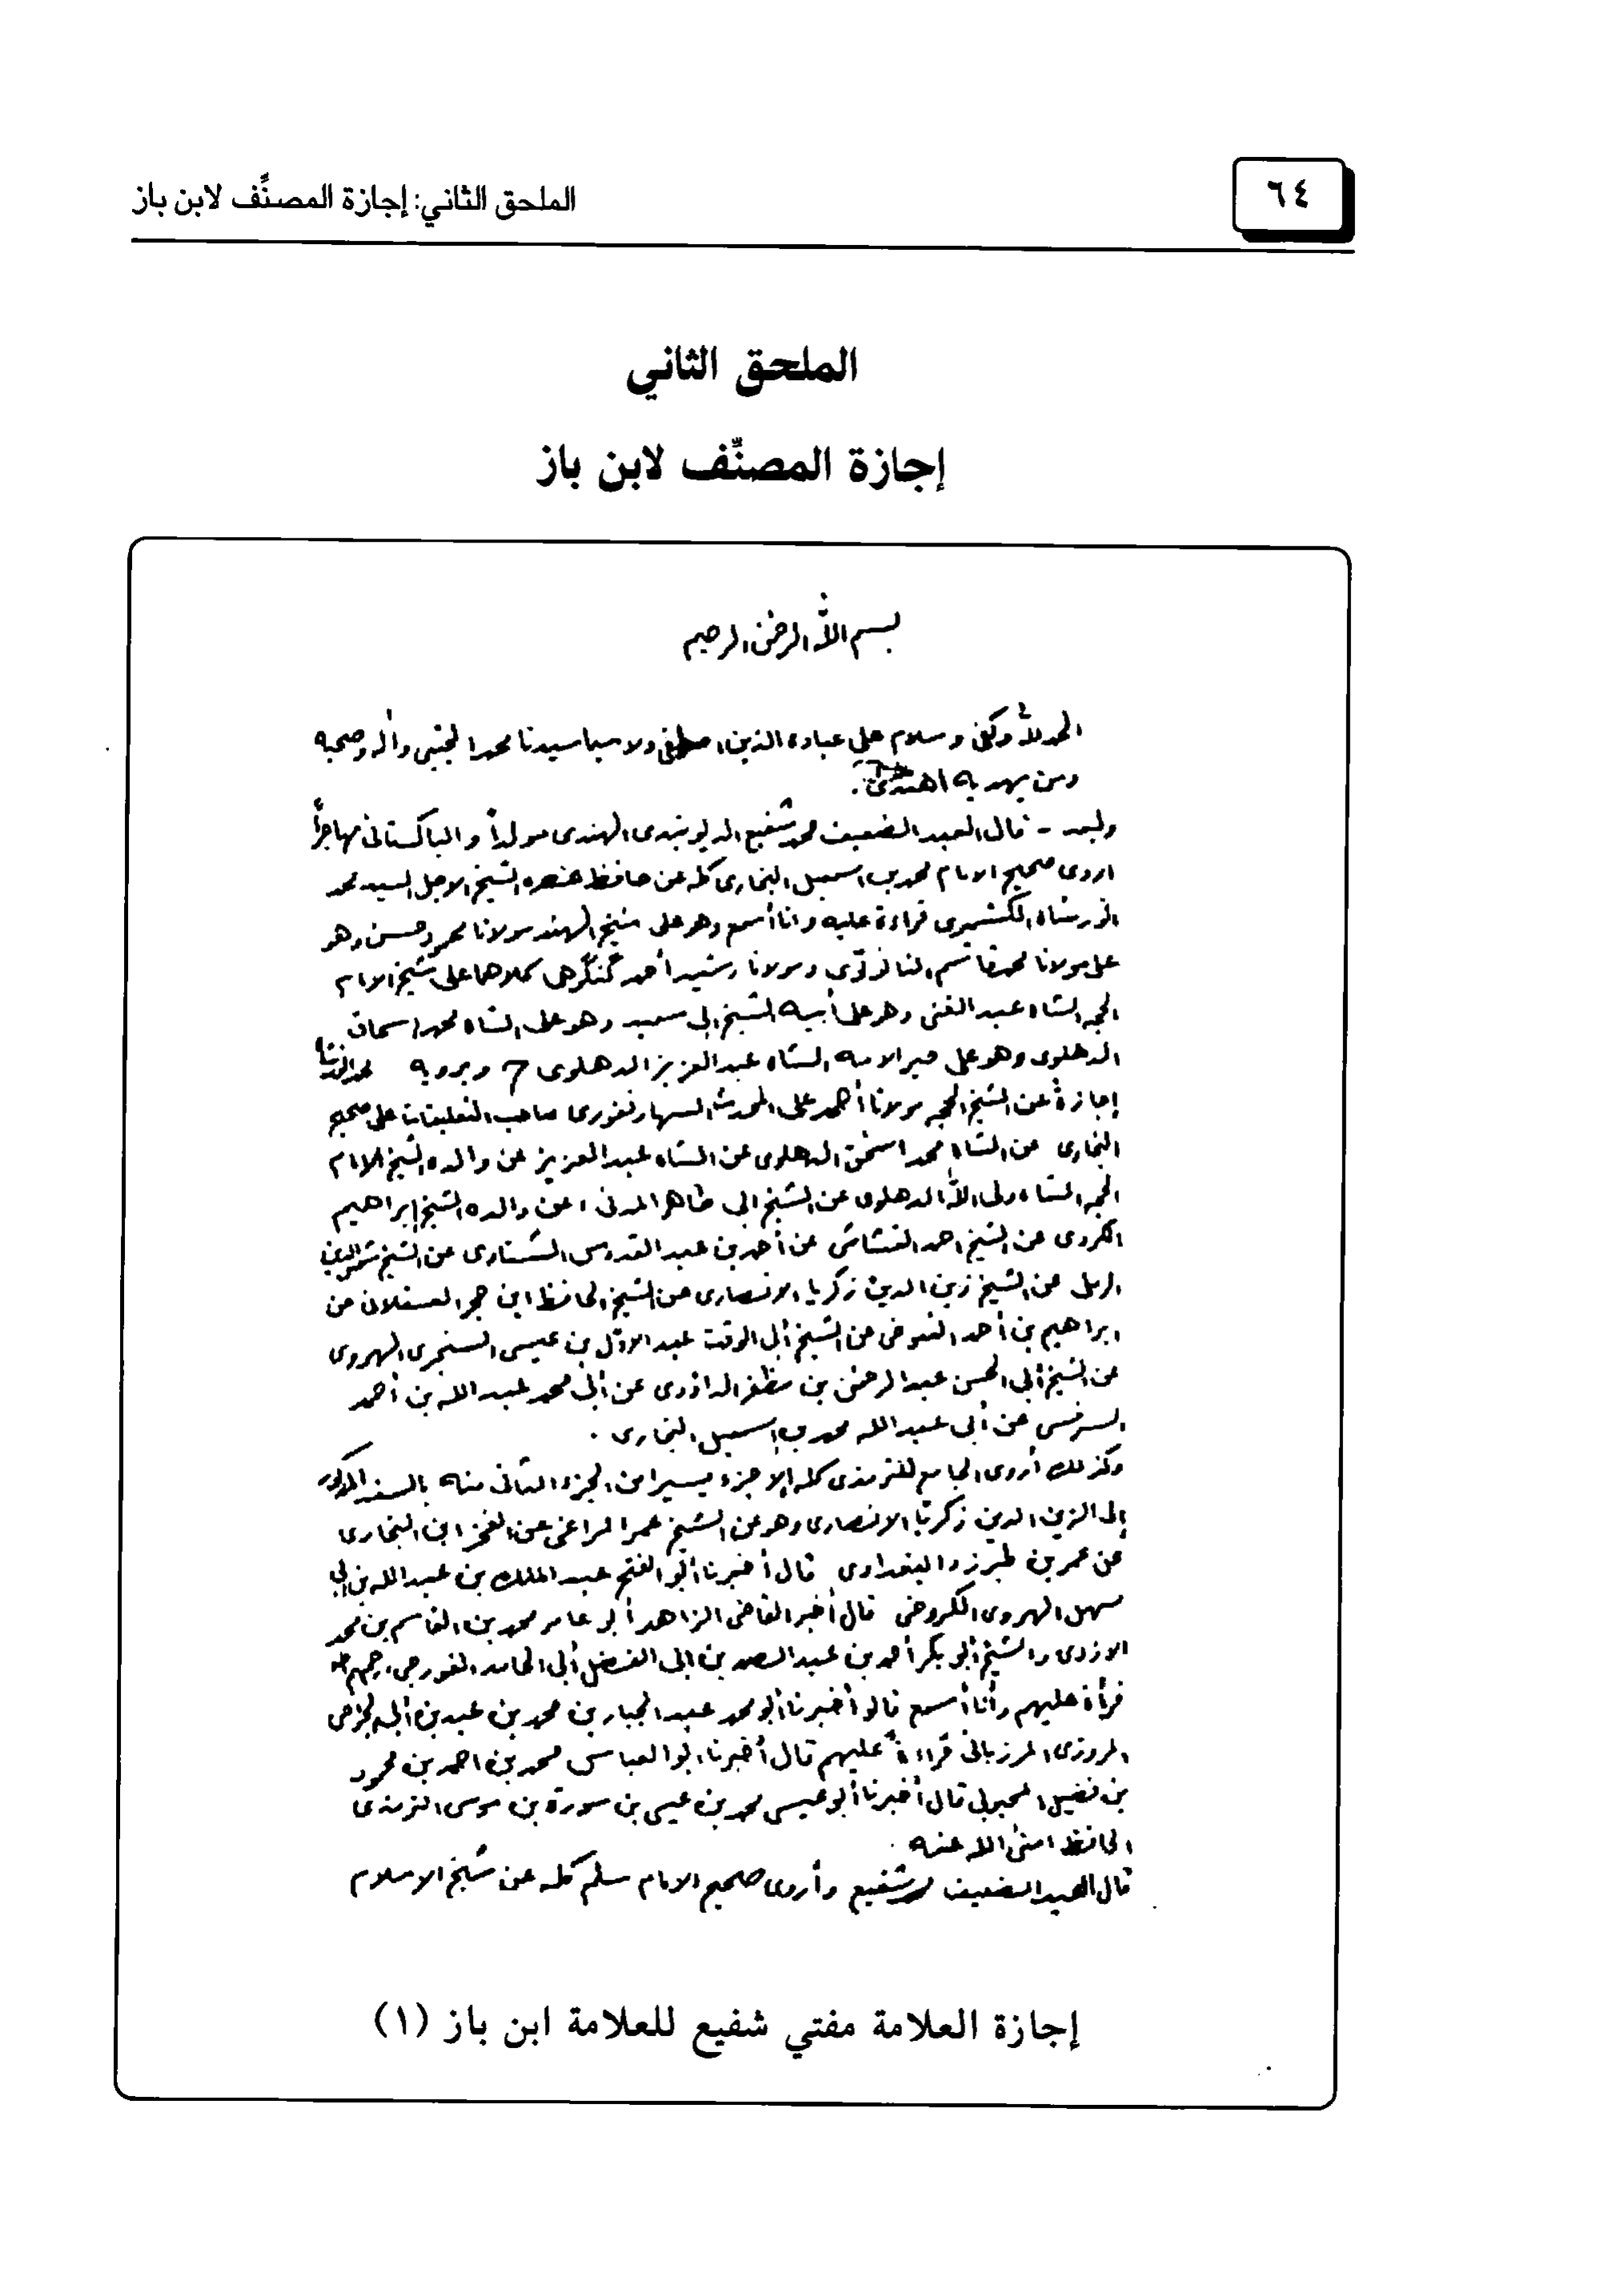 ٦٤
الملحق الثاني: إجازة المصنِّف لابن باز
الملحق الثاني
إجازة المصنِّف لابن باز
بسم الله الرحمن الرحيم
الحمد لله وكفى وسلام على عباده الذين اصطفى ولا سيما سيدنا محمد المجتبى وآله وصحبه
ومن بهديه اهتدى.
وبعد - قال العبد الضعيف محمد شفيع الديوبندى الهندى مولداً والباكستانى مهاجراً
اروى صحيح الامام محمد بن اسمعيل البخارى كله عن حافظ عصره الشيخ الاجل السيد محمد
انور شاه الكشميرى قراءة عليه وانا أسمع وهو على شيخ الهند مولانا محمود حسن وهو
على مولانا محمد قاسم النانوتوى ومولانا رشيد أحمد گنگوهى كلاهما على شيخ الامام
الحجه الشاه عبد الغنى وهو على أبيه الشيخ ابى سعيد وهو على الشاه محمد اسحاق
الدهلوى وهو على حبر الامه الشاه عبد العزيز الدهلوى ح ويرويه محمد انور شاه
إجازة عن الشيخ الحجه مولانا أحمد على المحدث السهارنفورى صاحب التعليقات على صحيح
البخارى عن الشاه محمد اسحق الدهلوى عن الشاه عبد العزيز عن والده الشيخ الامام
الحجه الشاه ولى الله الدهلوى عن الشيخ ابى طاهر المدنى عن والده الشيخ إبراهيم
الكردى عن الشيخ احمد القشاشى عن أحمد بن عبد القدوس الشناوى عن الشيخ شمس الدين
الرملى عن الشيخ زين الدين زكريا الانصارى عن الشيخ الحافظ ابن حجر العسقلانى عن
ابراهيم بن أحمد التنوخى عن الشيخ أبى الوقت عبد الاول بن عيسى السنجرى الهروى
عن الشيخ أبى الحسن عبد الرحمن بن مظفر الداؤدى عن أبى محمد عبد الله بن أحمد
السرخسى عن أبى عبد الله محمد بن اسمعيل البخارى .
وكذلك أروى الجامع للترمذى كله إلا جزء يسيرا من الجزء الثانى منه بالسند المذكور
إلى الزين الدين زكريا الانصارى وهو عن الشيخ عمر المراغى عن الفخر ابن البخارى
عن عمر بن طبرزد البغدادى قال أخبرنا أبو الفتح عبد الملك بن عبد الله بن أبى
سهل الهروى الكروخى قال أخبر القاضى الزاهد أبو عامر محمد بن القاسم بن محمد
الازدى والشيخ أبو بكر أحمد بن عبد الصمد بن ابى الفضل أبى الحامد الغورجى رحمهم الله
قرأة عليهم وأنا أسمع قالو أخبرنا أبو محمد عبد الجبار بن محمد بن عبد بن أبى الجراحى
المروزى المرزبانى قراءة عليهم قال أخبرنا ابو العباس محمد بن احمد بن محمود
بن فضيل المحبوبى قال أخبرنا أبو عيسى محمد بن عيسى بن سورة بن موسى الترمذى
الحافظ رضى الله عنه .
قال العبد الضعيف محمد شفيع وأروى صحيح الامام مسلم كله عن شيخ الاسلام
إجازة العلامة مفتي شفيع للعلامة ابن باز (١)